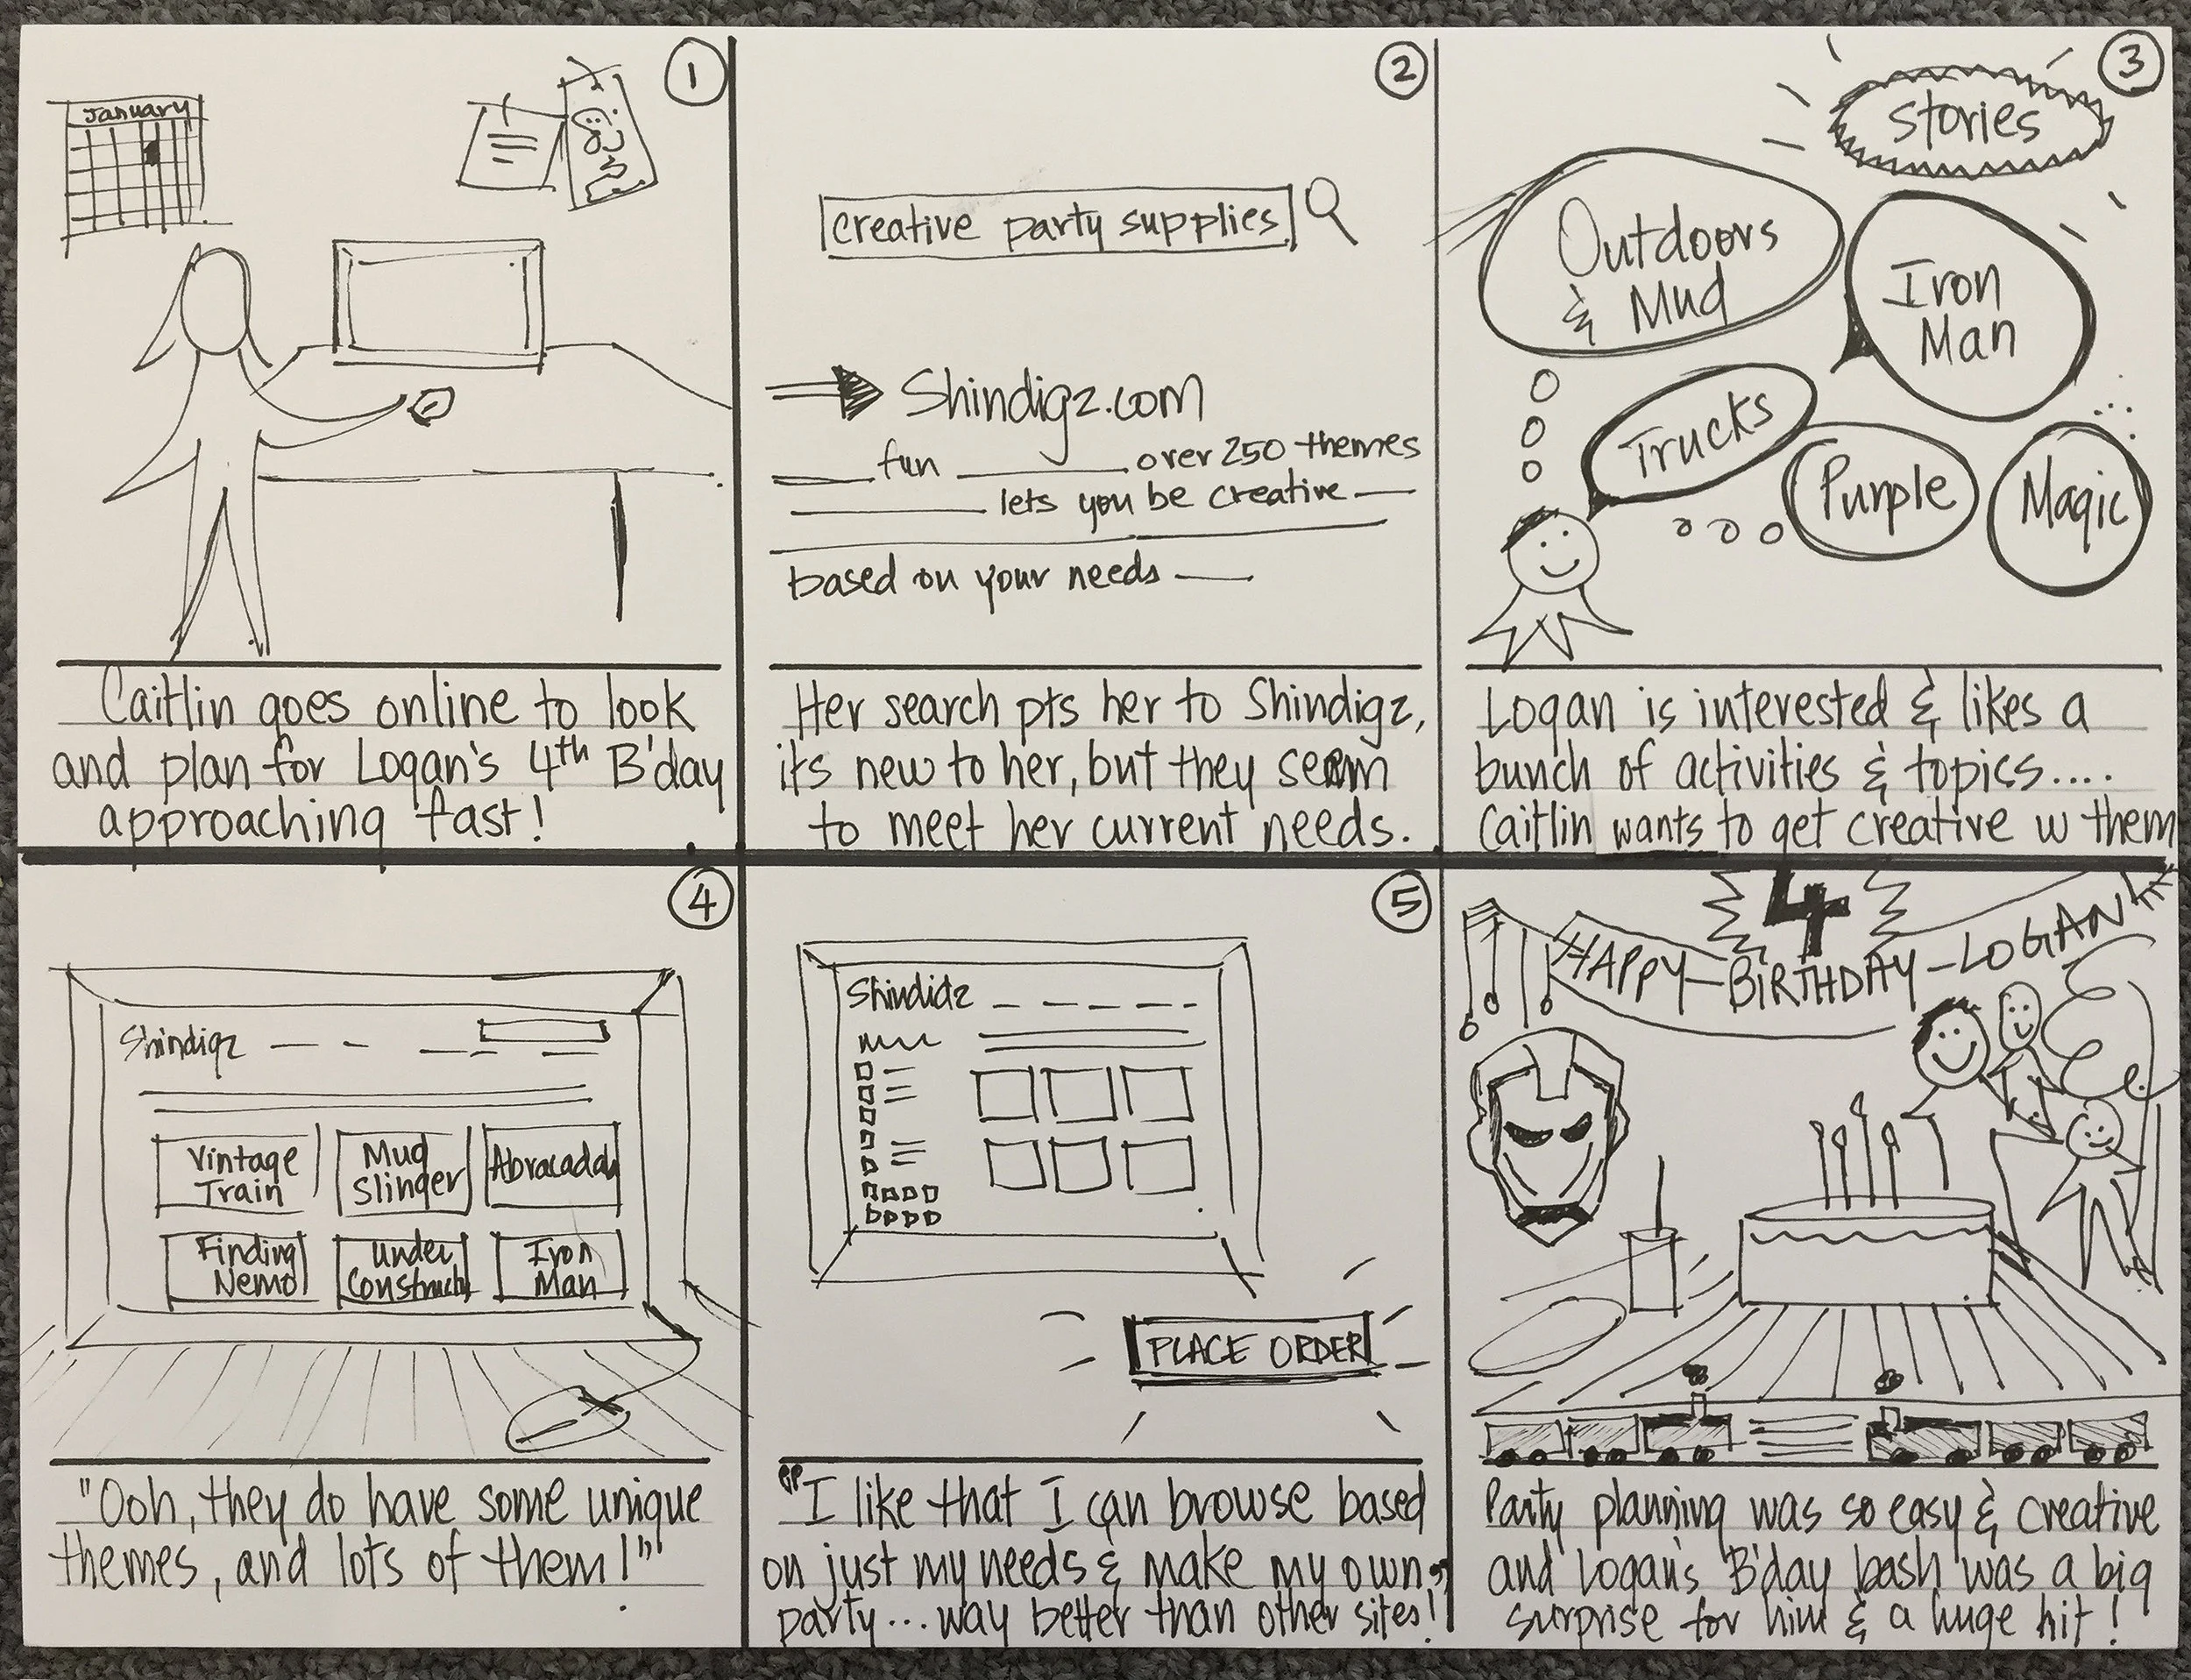 1
January
Caitlin goes online to look
and plan for Logan's 4th B'day
approaching fast!
2
creative party supplies
Shindigz.com
fun over 250 themes
lets you be creative
based on your needs
Her search pts her to Shindigz,
its new to her, but they seem
to meet her current needs.
3
Stories
Outdoors
& Mud
Iron
Man
Trucks
Purple
Magic
Logan is interested & likes a
bunch of activities & topics....
Caitlin wants to get creative w them
4
Shindigz
Vintage
Train
Mud
Slinger
Abracadab
Finding
Nemo
Under
Construct
Iron
Man
"Ooh, they do have some unique
themes, and lots of them!"
5
Shindidz
PLACE ORDER
"I like that I can browse based
on just my needs & make my own
party... way better than other sites!"
4
HAPPY-BIRTHDAY-LOGAN
Party planning was so easy & creative
and Logan's B'day bash was a big
surprise for him & a huge hit!